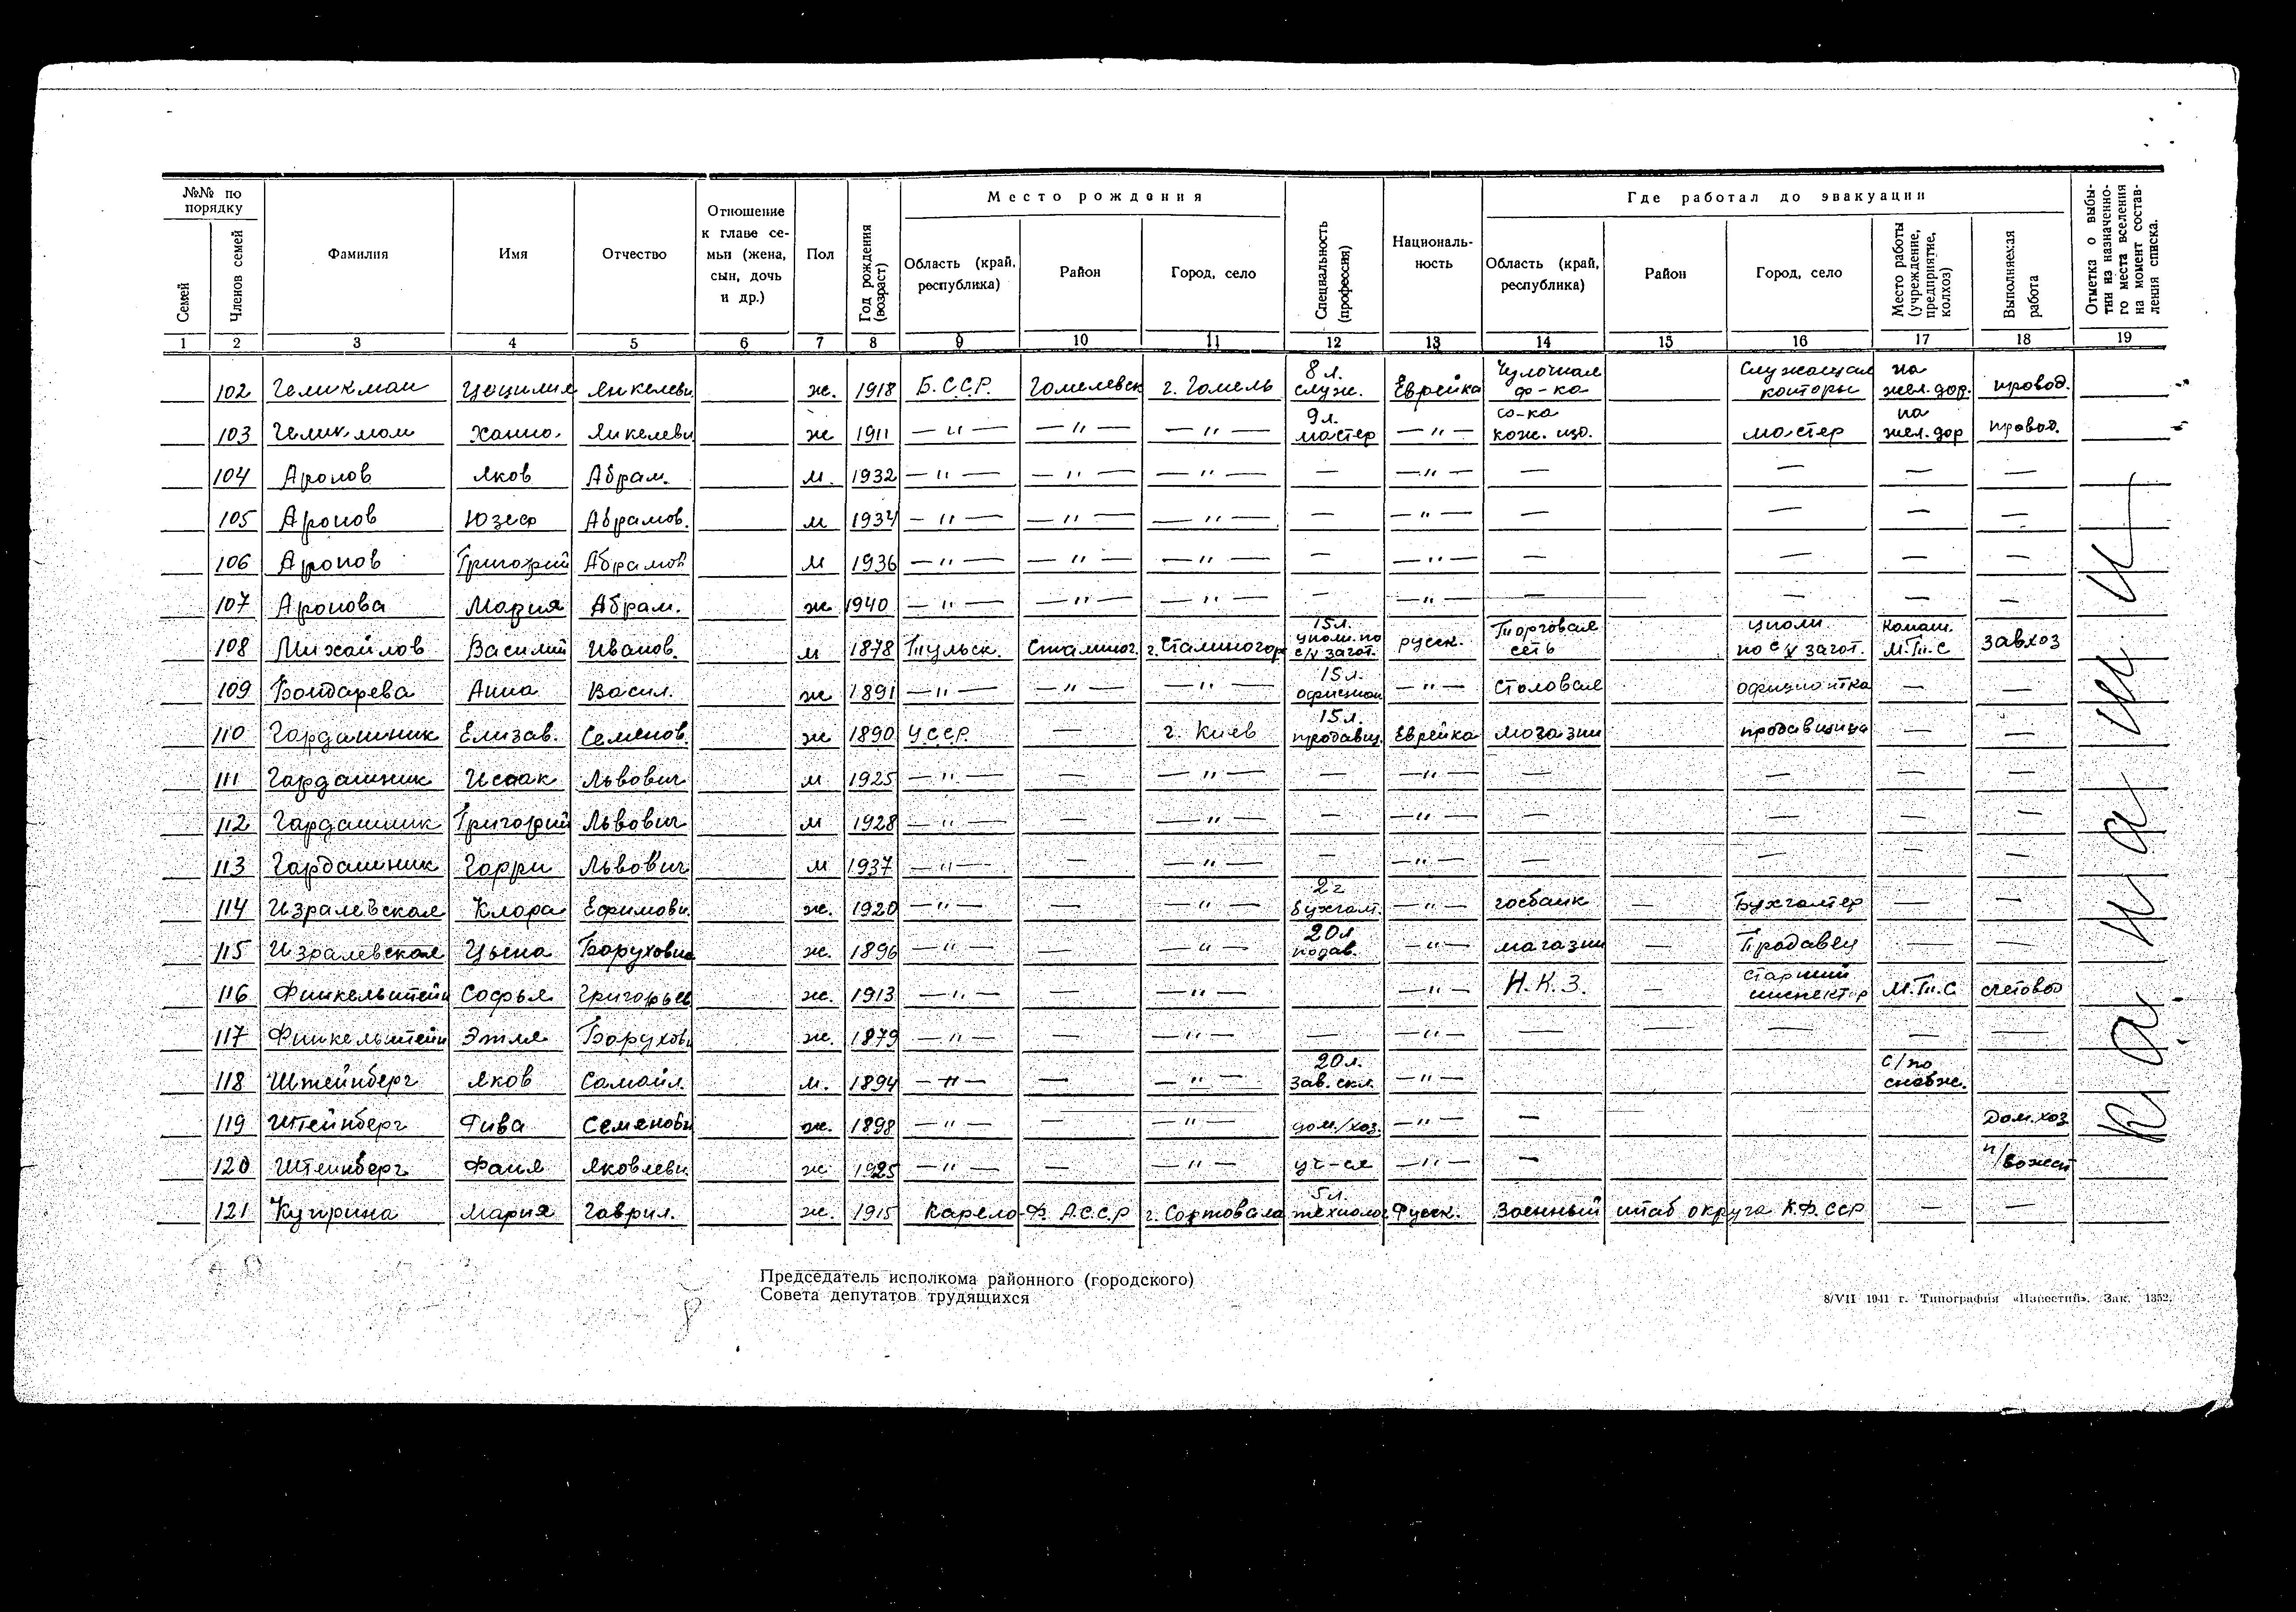 №№ по порядку
Семей
Членов семей
Фамилия
Имя
Отчество
Отношение к главе семьи (жена, сын, дочь и др.)
Пол
Год рождения (возраст)
Место рождения
Область (край, республика)
Район
Город, село
Специальность (профессия)
Национальность
Где работал до эвакуации
Область (край, республика)
Район
Город, село
Место работы (учреждение, предприятие, колхоз)
Выполняемая работа
Отметка о выбытии из назначенного места вселения на момент составления списка.
1 2 3 4 5 6 7 8 9 10 11 12 13 14 15 16 17 18 19
102 Геликман Цецилия Янкелеви ж. 1918 Б.С.С.Р. Гомелевск г. Гомель 8 л. служ. Еврейка Чулочная ф-ка Служащая конторы на жел. дор. провод.
103 Геликман Ханна Янкелеви ж 1911 — " — — " — — " — 9 л. мастер — " — кож. мастер на жел. дор провод.
104 Аронов Яков Абрам. м. 1932 — " — — " — — " — — — " — — — — —
105 Аронов Юзеф Абрамов. м 1934 — " — — " — — " — — — " — — — — —
106 Аронов Григорий Абрамов м 1936 — " — — " — — " — — — " — — — — —
107 Аронова Мария Абрам. ж 1940 — " — — " — — " — — — " — — — — —
108 Михайлов Василий Иванов. м 1878 Тульск. Сталиног. г. Сталиногор 15 л. уполн. по с/х загот. русск. Торговая сеть уполн по с/х загот. М.Т.С завхоз
109 Бондарева Анна Васил. ж 1891 — " — — " — — " — 15 л. официан — " — Столовая официантка — —
110 Гардашник Елизав. Семенов. ж 1890 УССР — г. Киев 15 л. продавщ. Еврейка магазин продавщица — —
111 Гардашник Исаак Львович м 1925 — " — — — " — — — " — — — — —
112 Гардашник Григорий Львович м 1928 — " — — — " — — — " — — — — —
113 Гардашник Гарри Львович м 1937 — " — — — " — — — " — — — — —
114 Изралевская Клара Ефимовн. ж. 1920 — " — — — " — 2 г бухгалт. — " — госбанк — Бухгалтер — —
115 Изралевская Цына Боруховна ж. 1896 — " — — — " — 20 л подав. — " — магазин — Продавец — —
116 Финкельштейн Софья Григорьев ж. 1913 — " — — — " — — " — Н.К.З. — старший инспектор М.Т.С. счетовод
117 Финкельштейн Этля Борухов ж. 1879 — " — — — " — — — " — — — — — —
118 Штейнберг Яков Самойл. м. 1894 — " — — — " — 20 л. зав. скл. — " — с/по снабж.
119 Штейнберг Рива Семеновн ж. 1898 — " — — — " — дом./хоз. — " — — Дом. хоз
120 Штейнберг Фаня Яковлевн. ж 1925 — " — — — " — уч-ся — " — — п/вожат
121 Куприна Мария Гаврил. ж. 1915 Карело-Ф. А.С.С.Р г. Сортовала 5 л. технолог Русск. Военный штаб округа К.Ф. ССР — —
Председатель исполкома районного (городского)
Совета депутатов трудящихся
8/VII 1941 г. Типография «Известий». Зак. 1352.